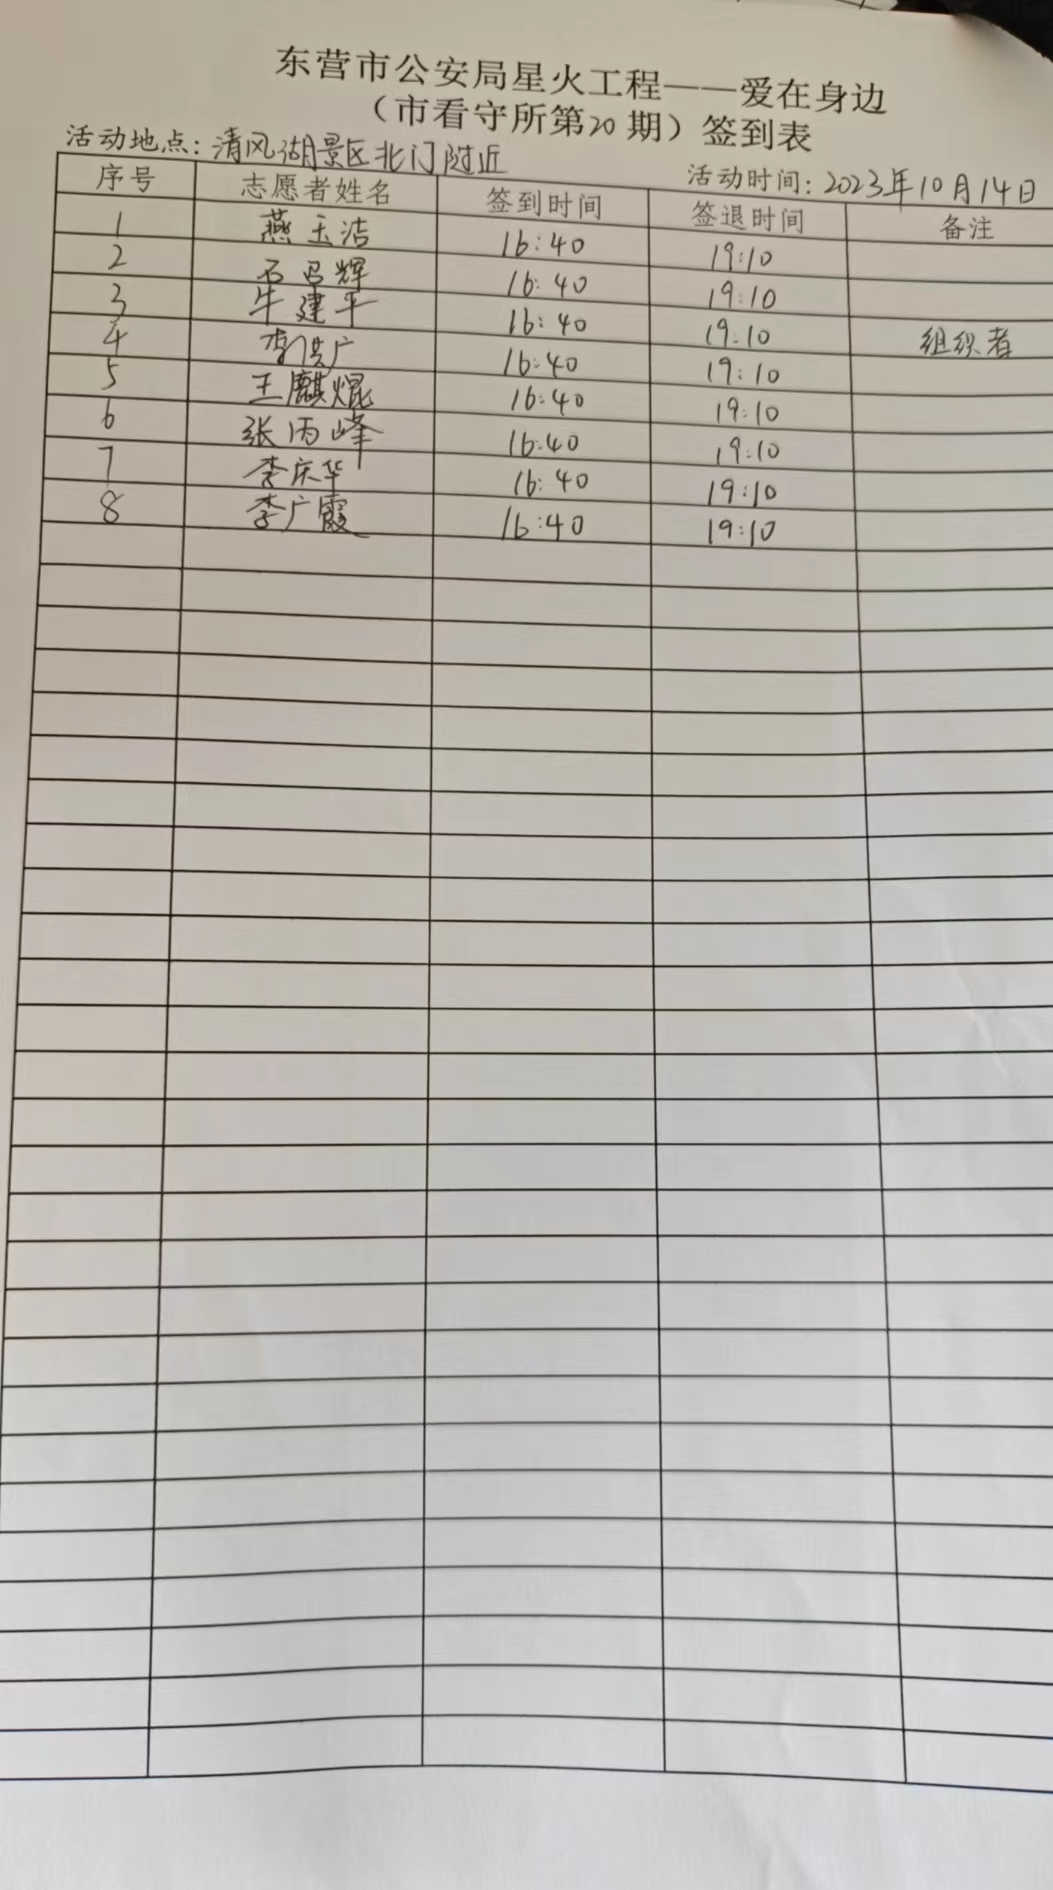 东营市公安局星火工程——爱在身边
（市看守所第20期）签到表
活动地点：清风湖景区北门附近 活动时间：2023年10月14日
序号 志愿者姓名 签到时间 签退时间 备注
1 燕玉洁 16:40 19:10
2 石召辉 16:40 19:10
3 牛建平 16:40 19:10 组织者
4 广 16:40 19:10
5 王麒焜 16:40 19:10
6 张丙峰 16:40 19:10
7 李庆华 16:40 19:10
8 李广霞 16:40 19:10